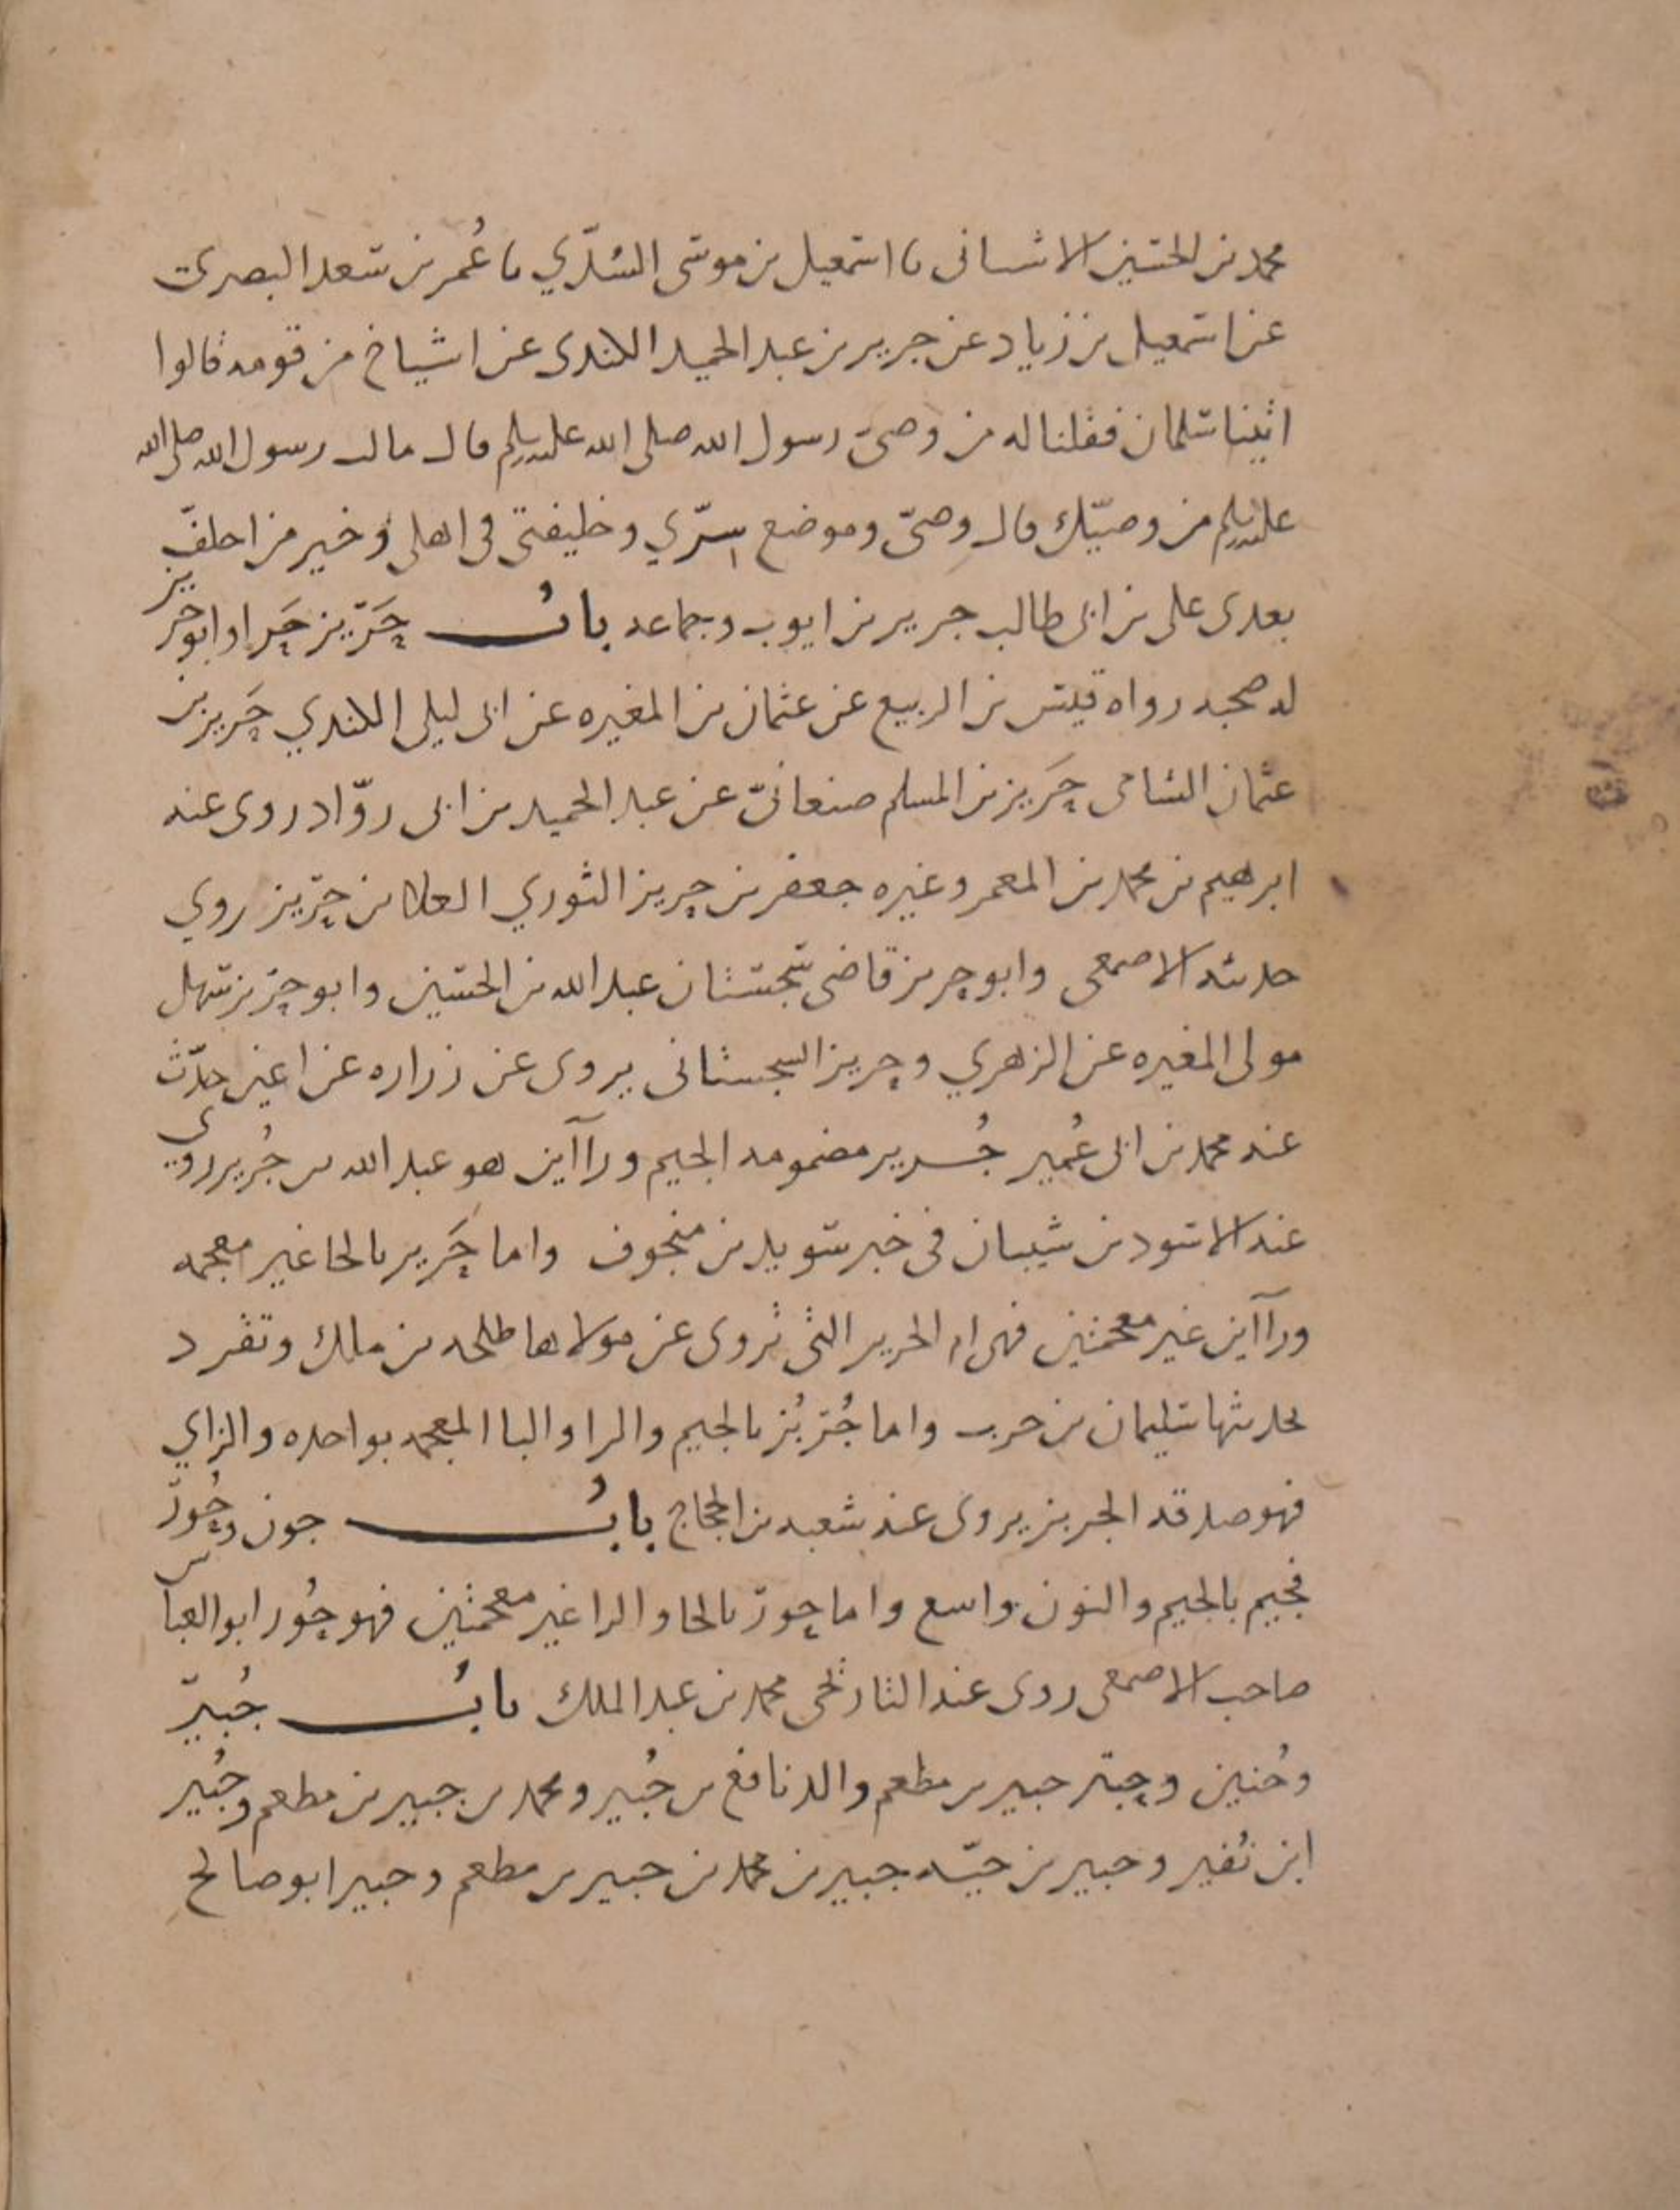 محمد بن الحسين الاشنانى نا اسمعيل بن موسى السُدّي نا عُمر بن سعد البصرى
عن اسمعيل بن زياد عن جرير بن عبد الحميد الكندى عن اشياخ من قومه قالوا
اتينا سلمان فقلنا له من وصىّ رسول الله صلى الله عليه وسلم قال سالت رسول الله صلى الله
عليه وسلم من وصيّك قال وصىّ وموضع سرّي وخليفتى فى اهلى وخير من اخلف
بعدى على بن ابى طالب جرير بن ايوب وجماعه باب حَرِيز حَريز ابو حريز
له صحبه رواه قيس بن الربيع عن عثمان بن المغيره عن ابى ليلى الكندي حَريز بن
عثمان الشامى حَريز بن المسلم صنعانىّ عن عبد الحميد بن ابى روّاد روى عنه
ابرهيم بن محمد بن المعمر وغيره جعفر بن حريز الثوري العلا بن حريز روي
حديثه الاصمعى وابو حريز قاضى سجستان عبد الله بن الحسين وابو حريز سهل
مولى المغيره عن الزهري وحريز السجستانى يروى عن زراره عن اعين حدّث
عنه محمد بن ابى عُمير جُرير مضمومه الجيم وراآين هو عبد الله بن جُرير روي
عنه الاسود بن شيبان فى خبر سويد بن منجوف واما حَرير بالحا غير معجمه
وراآين غير معجمتين فهى ام الحرير التى تروى عن مولاها طلحه بن مالك وتفرد
بحديثها سليمان بن حرب واما جُربُز بالجيم والرا والبا المعجمه بواحده والزاي
فهو صدقه الجربز يروى عنه شعبه بن الحجاج باب جون وحُور
فجيم بالجيم والنون واسع واما حور بالحا والرا غير معجمتين فهو حُور ابو العباس
صاحب الاصمعى روى عنه التاريخى محمد بن عبد الملك باب جُبير
وحُنين وحبتر جبير بن مطعم والد نافع بن جُبير ومحمد بن جبير بن مطعم وجُبير
ابن نُفير وجبير بن حيّه جبير بن محمد بن جبير بن مطعم وجبير ابو صالح